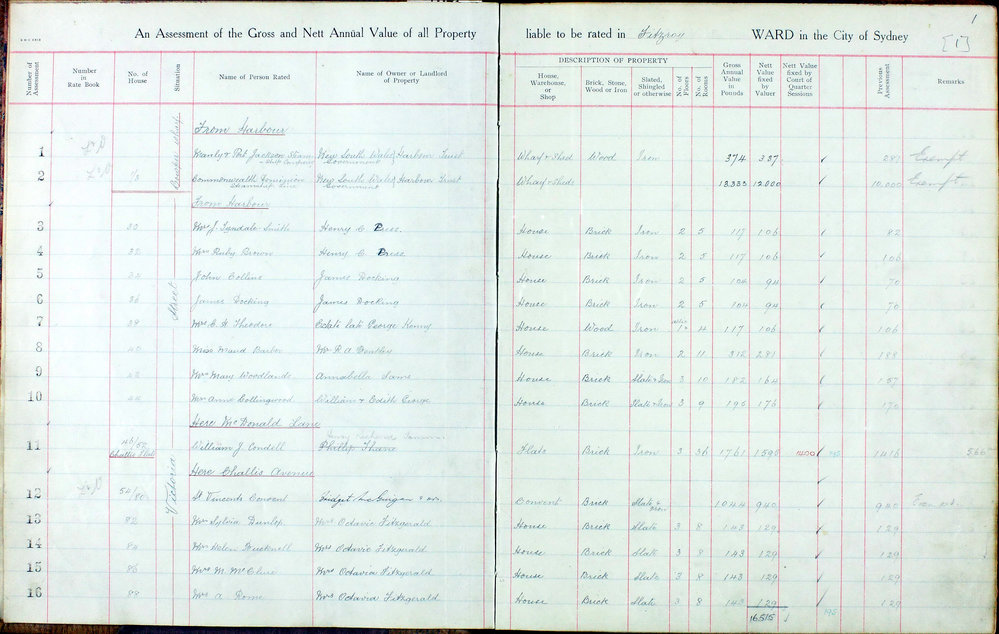 An Assessment of the Gross and Nett Annual Value of all Property liable to be rated in Fitzroy WARD in the City of Sydney
1
[1]
Number of Assessment
Number in Rate Book
No. of House
Situation
Name of Person Rated
Name of Owner or Landlord of Property
DESCRIPTION OF PROPERTY
House, Warehouse, or Shop
Brick, Stone, Wood or Iron
Slated, Shingled or otherwise
No. of Floors
No. of Rooms
Gross Annual Value in Pounds
Nett Value fixed by Valuer
Nett Value fixed by Court of Quarter Sessions
Previous Assessment
Remarks
Cowper Wharf
From Harbour
1 Manly & Port Jackson Steam Ship Company New South Wales Government Harbour Trust Wharf & Shed Wood Iron 374 337 281 Exempt
2 1/3 Commonwealth Dominion Steamship Line New South Wales Government Harbour Trust Wharf & Sheds 13333 12000 10,000 Exempt
Victoria Street
From Harbour
3 30 Mrs J. Tyndale Smith Henry C. House Brick Iron 2 5 117 106 82
4 32 Mrs Ruby Brown Henry C. House Brick Iron 2 5 117 106 106
5 34 John Collins James Docking House Brick Iron 2 5 104 94 70
6 36 James Docking James Docking House Brick Iron 2 5 104 94 70
7 38 Mrs C. H. Theodore Estate late George Kenny House Wood Iron 1 4 117 106 106
8 40 Miss Maud Barber Mr R A Bentley House Brick Iron 2 11 312 281 188
9 42 Mrs Mary Woodlands Annabella Sams House Brick Slate & Iron 3 10 182 164 157
10 44 Mrs Anne Collingwood William & Edith George House Brick Slate & Iron 3 9 195 176 170
Here McDonald Lane
11 46/52 Challis Flats William J. Condell Phillip Thane Flats Brick Iron 3 36 1761 1595 1400 195 1416 566
Here Challis Avenue
12 54/80 St Vincents Convent Bridget McGuigan & ors Convent Brick Slate & Iron 1044 940 940 Exempt
13 82 Mrs Sylvia Dunlop Mrs Octavia Fitzgerald House Brick Slate 3 8 143 129 129
14 84 Mrs Helen Bucknell Mrs Octavia Fitzgerald House Brick Slate 3 8 143 129 129
15 86 Mrs M. McClure Mrs Octavia Fitzgerald House Brick Slate 3 8 143 129 129
16 88 Mrs A Rome Mrs Octavia Fitzgerald House Brick Slate 3 8 143 129 129
16515 195